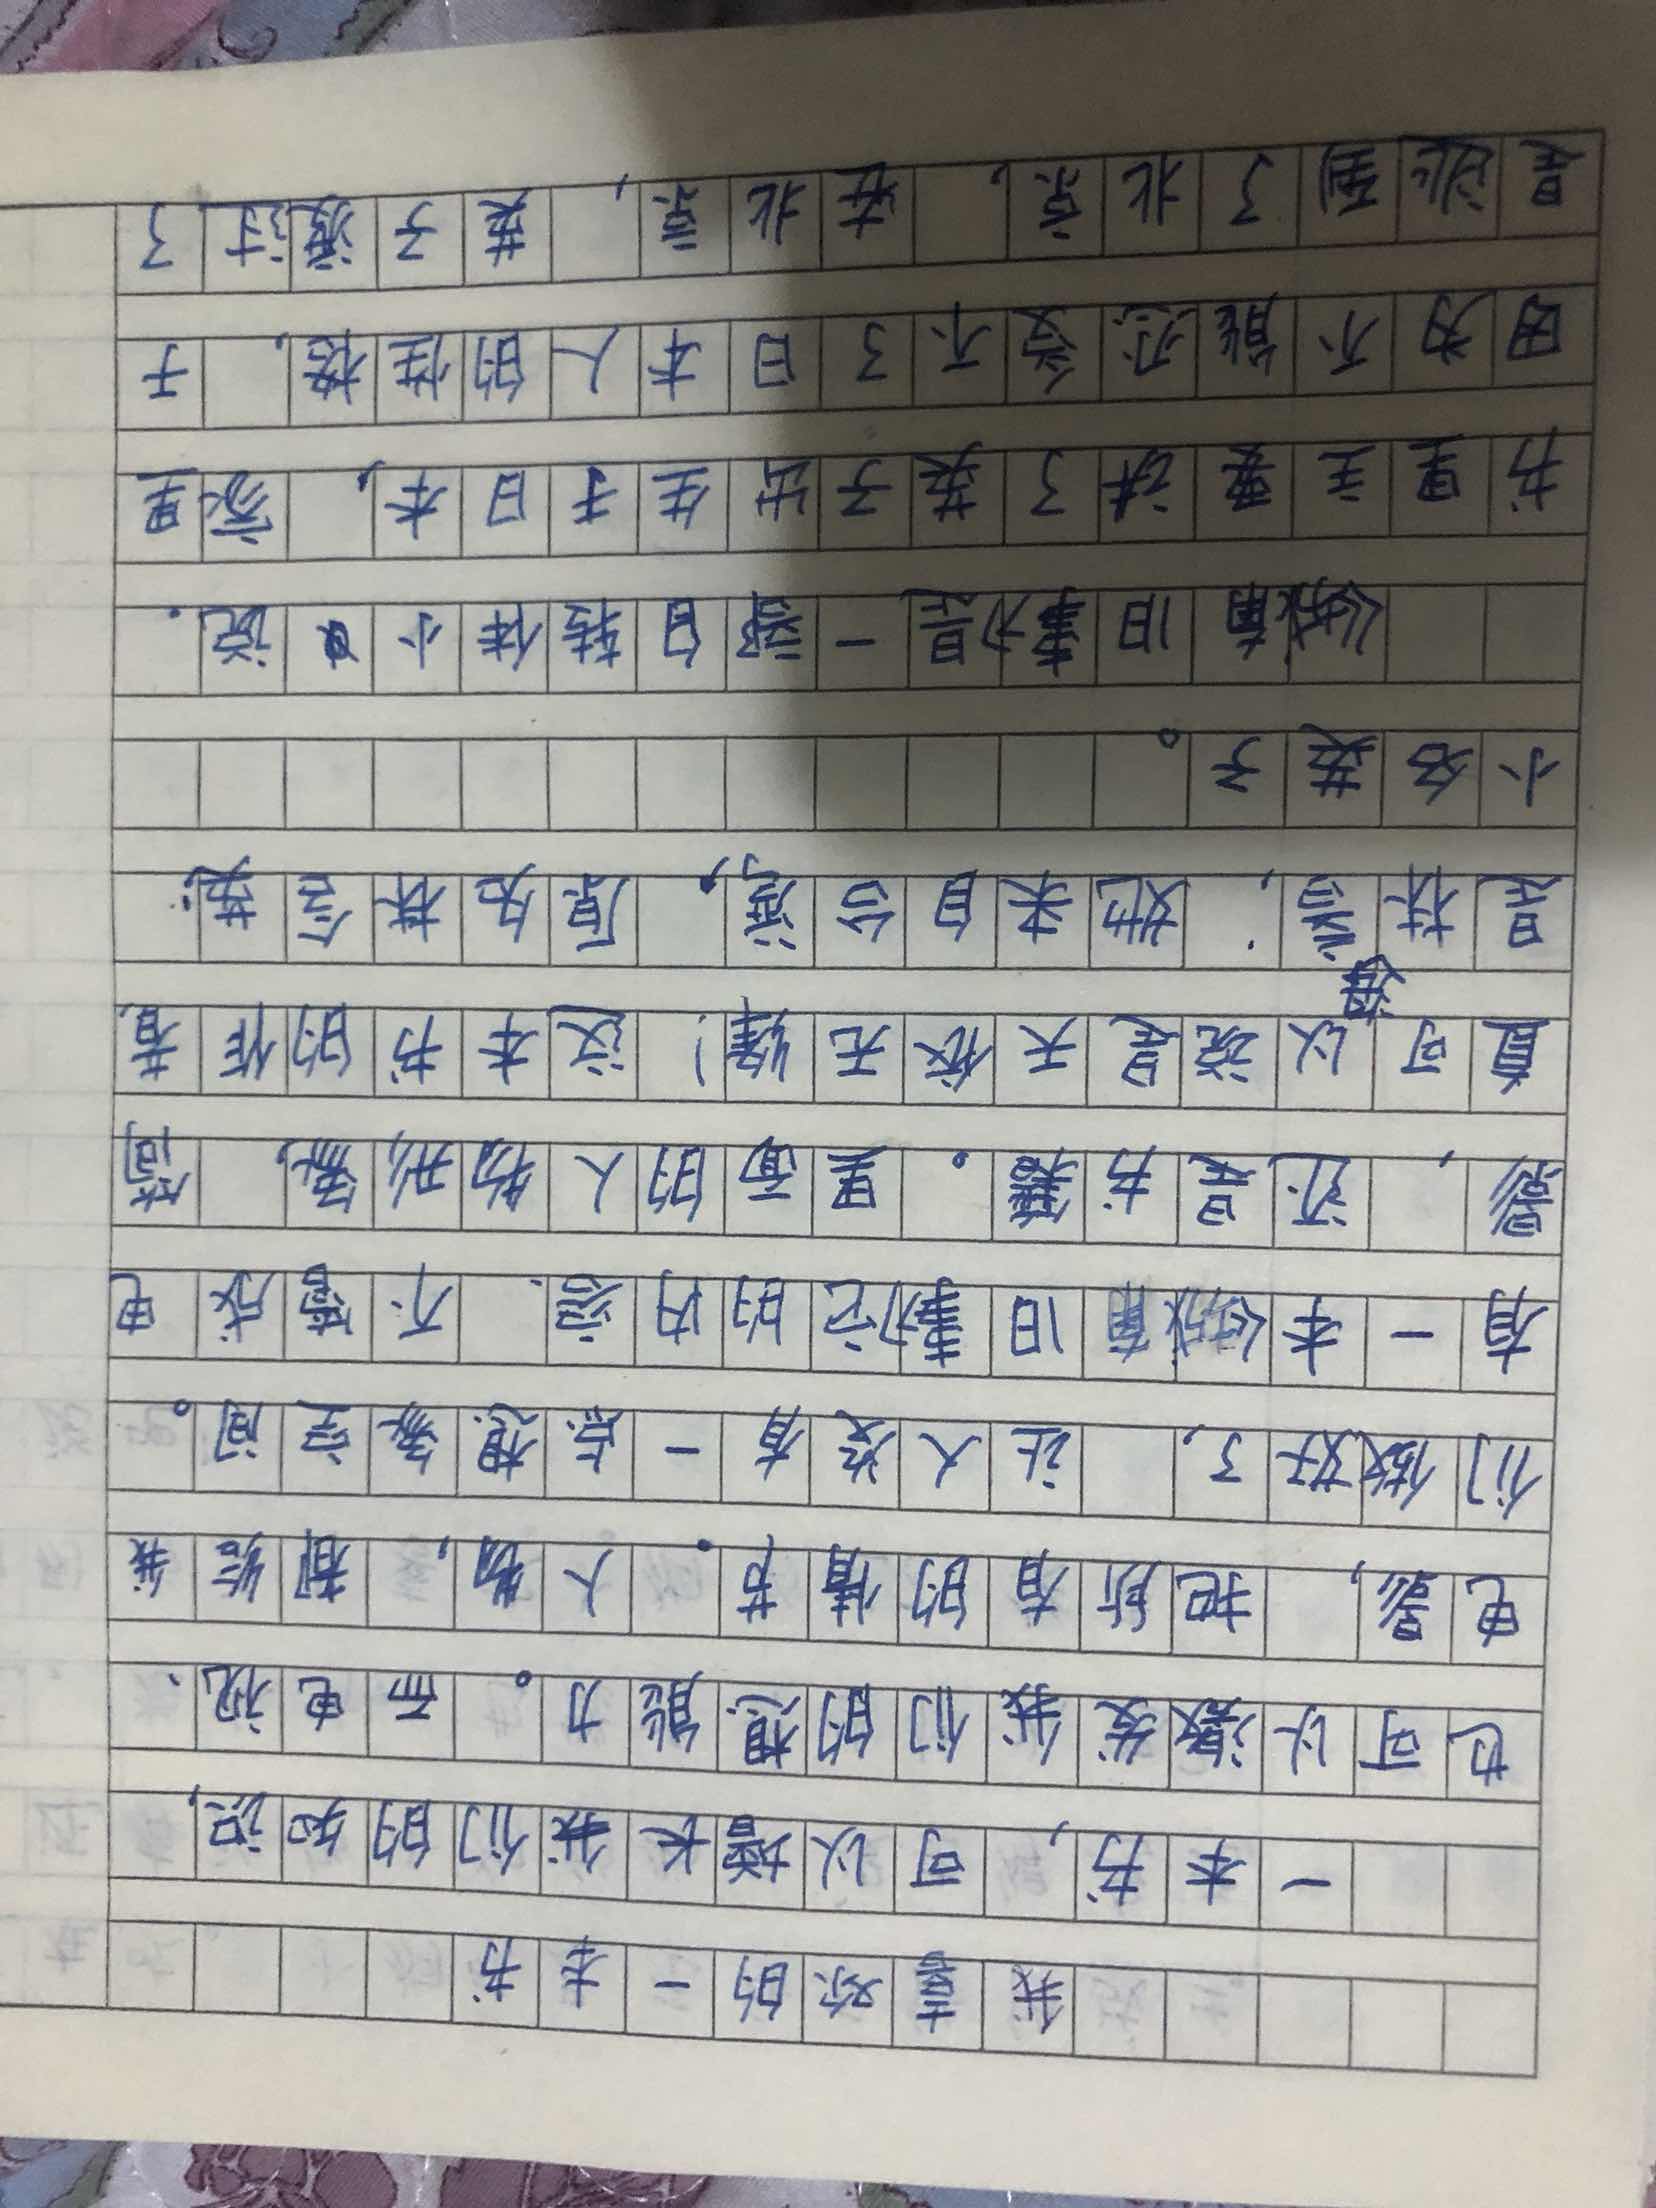 我喜欢的一本书
一本书，可以增长我们的知识，
也可以激发我们的想能力。而电视、
电影，把所有的情节。人物，都给我
们做好了，让人没有一点想象空间。
有一本《城南旧事》它的内容，不管成电
影，还是书籍。里面的人物形象，简
直可以说是天衣无缝！这本书的作者
是林海音，她来自台湾，原名林含英，
小名英子。
《城南旧事》是一部自转体小说。
书里主要讲了英子出生于日本，家里
因为不能忍受不了日本人的性格，于
是逃到了北京，在北京，英子渡过了